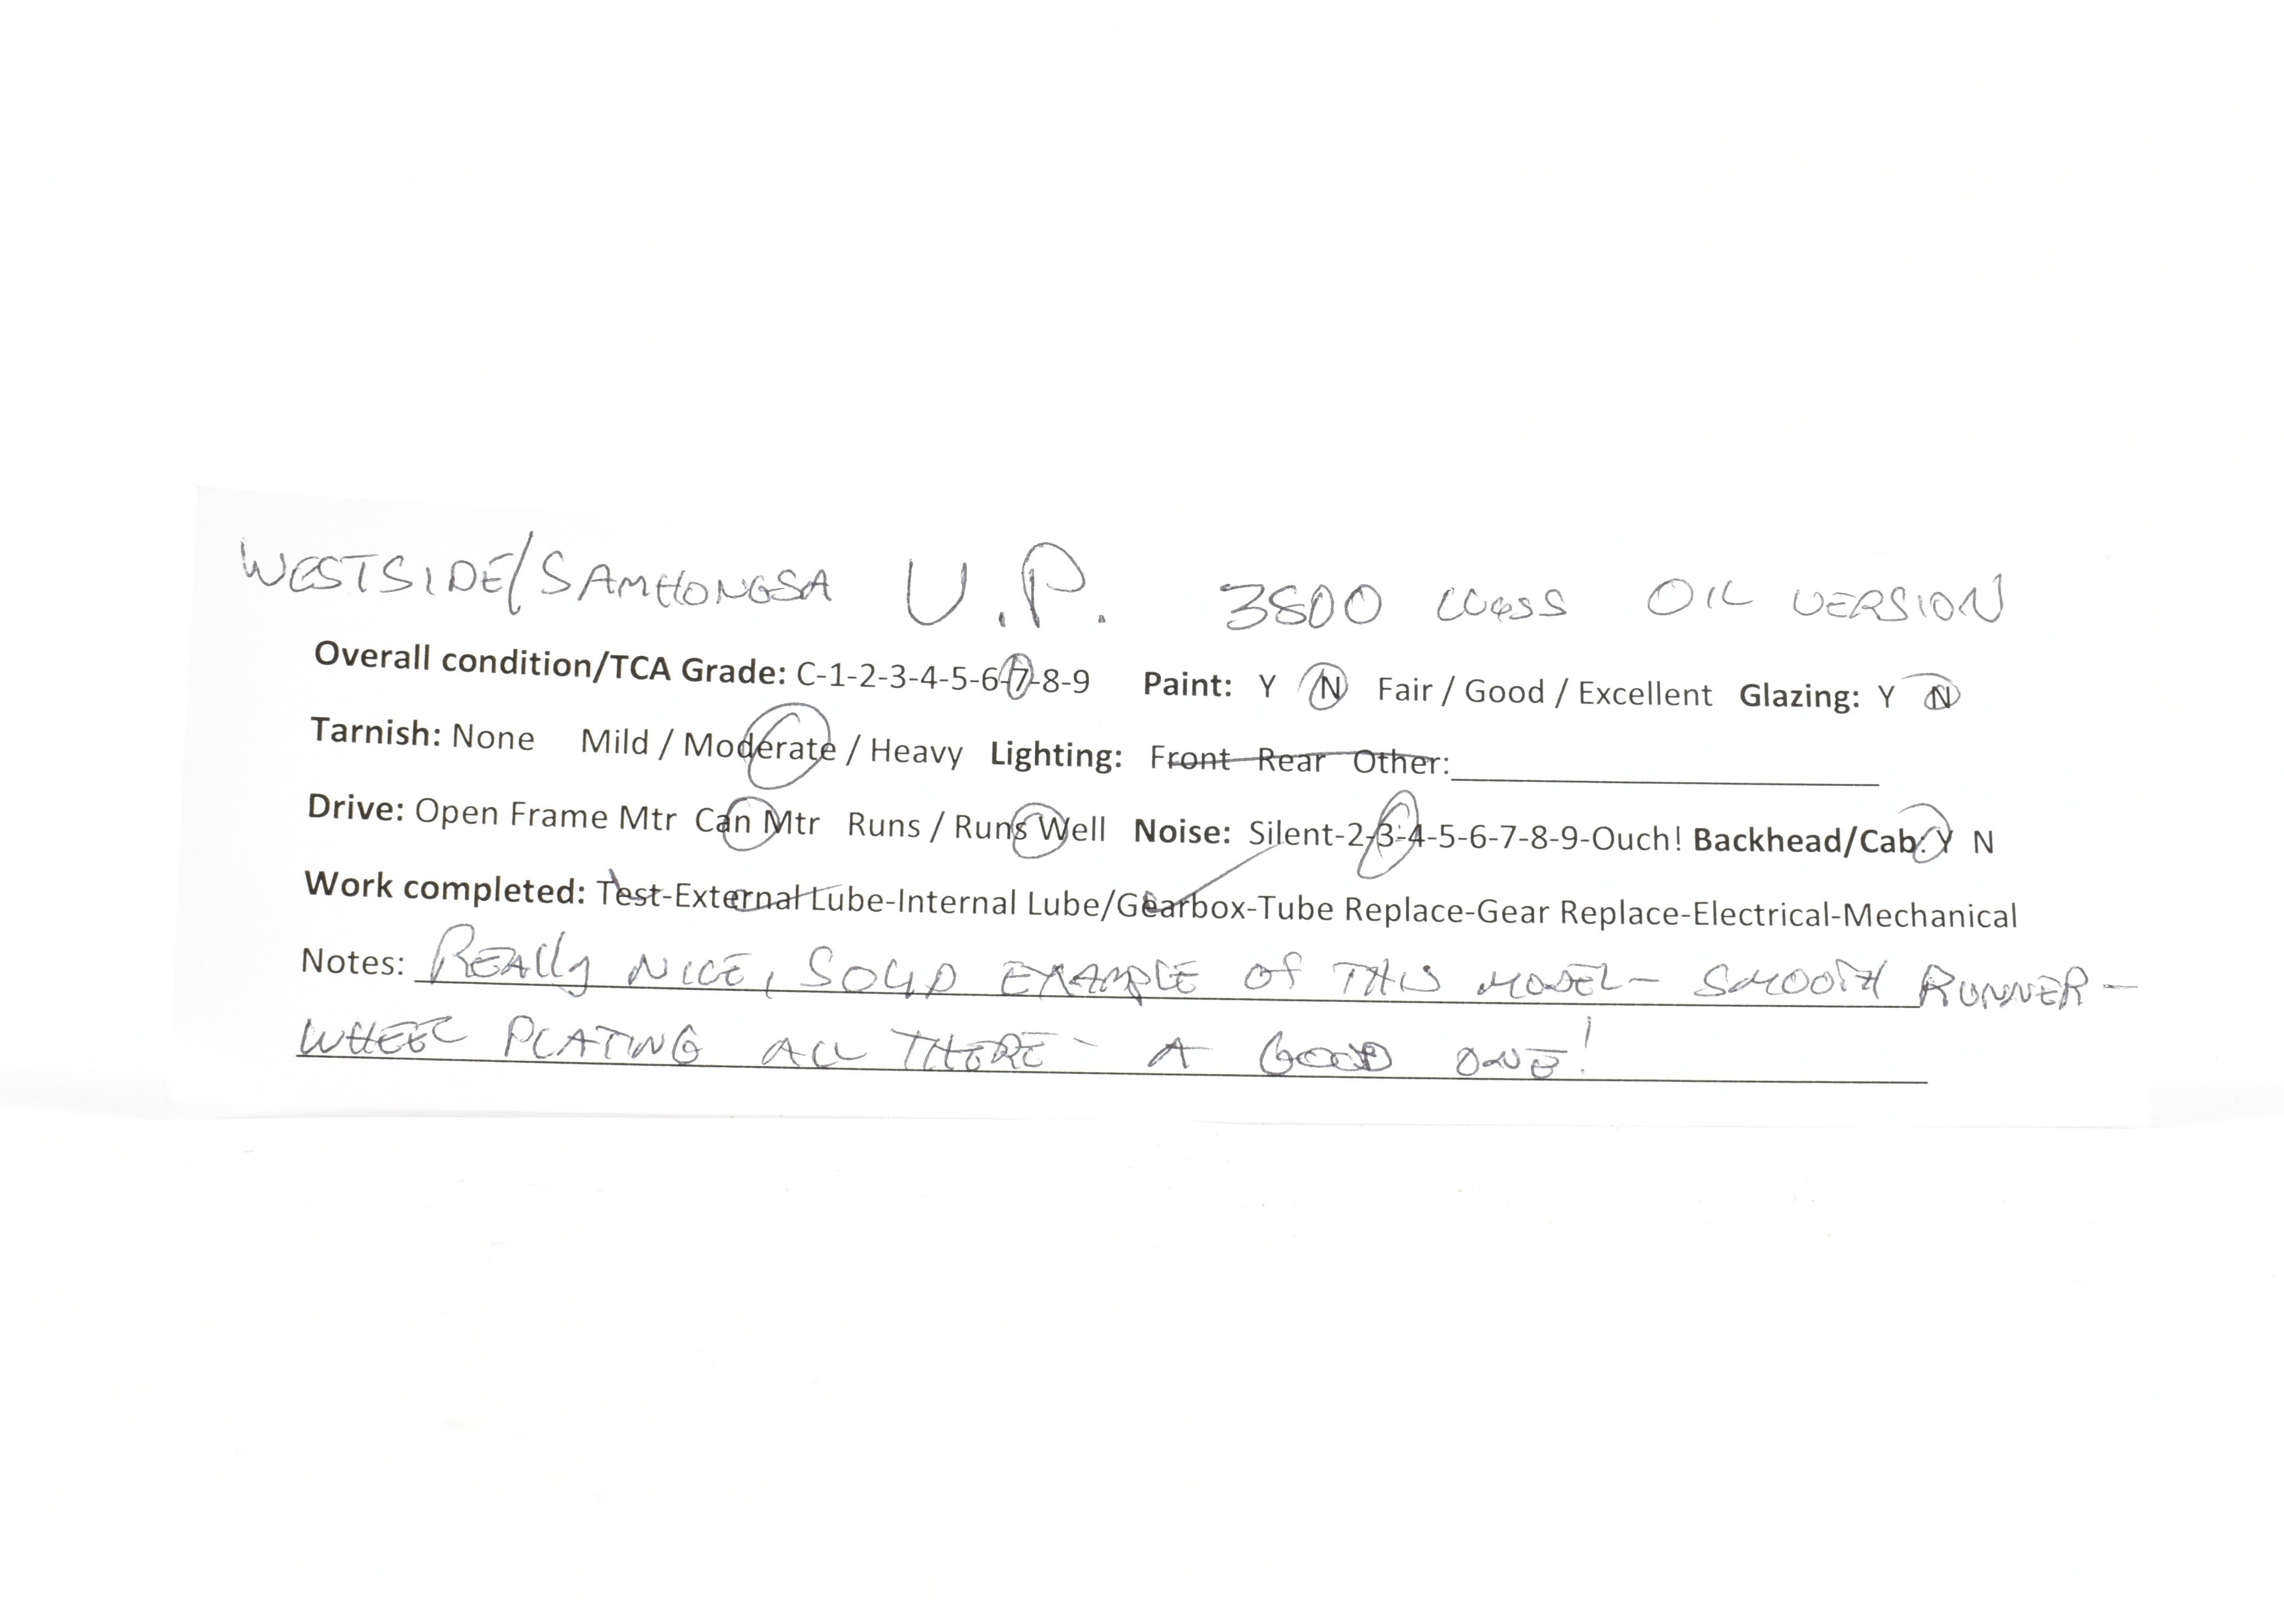 WESTSIDE/SAMHONGSA U.P. 3800 CLASS OIL VERSION
Overall condition/TCA Grade: C-1-2-3-4-5-6-7-8-9 Paint: Y N Fair / Good / Excellent Glazing: Y N
Tarnish: None Mild / Moderate / Heavy Lighting: Front Rear Other:
Drive: Open Frame Mtr Can Mtr Runs / Runs Well Noise: Silent-2-3-4-5-6-7-8-9-Ouch! Backhead/Cab: Y N
Work completed: Test-External Lube-Internal Lube/Gearbox-Tube Replace-Gear Replace-Electrical-Mechanical
Notes: REALLY NICE, SOLID EXAMPLE OF THIS MODEL- SMOOTH RUNNER-
WHEEL PLATING ALL THERE- A GOOD ONE!